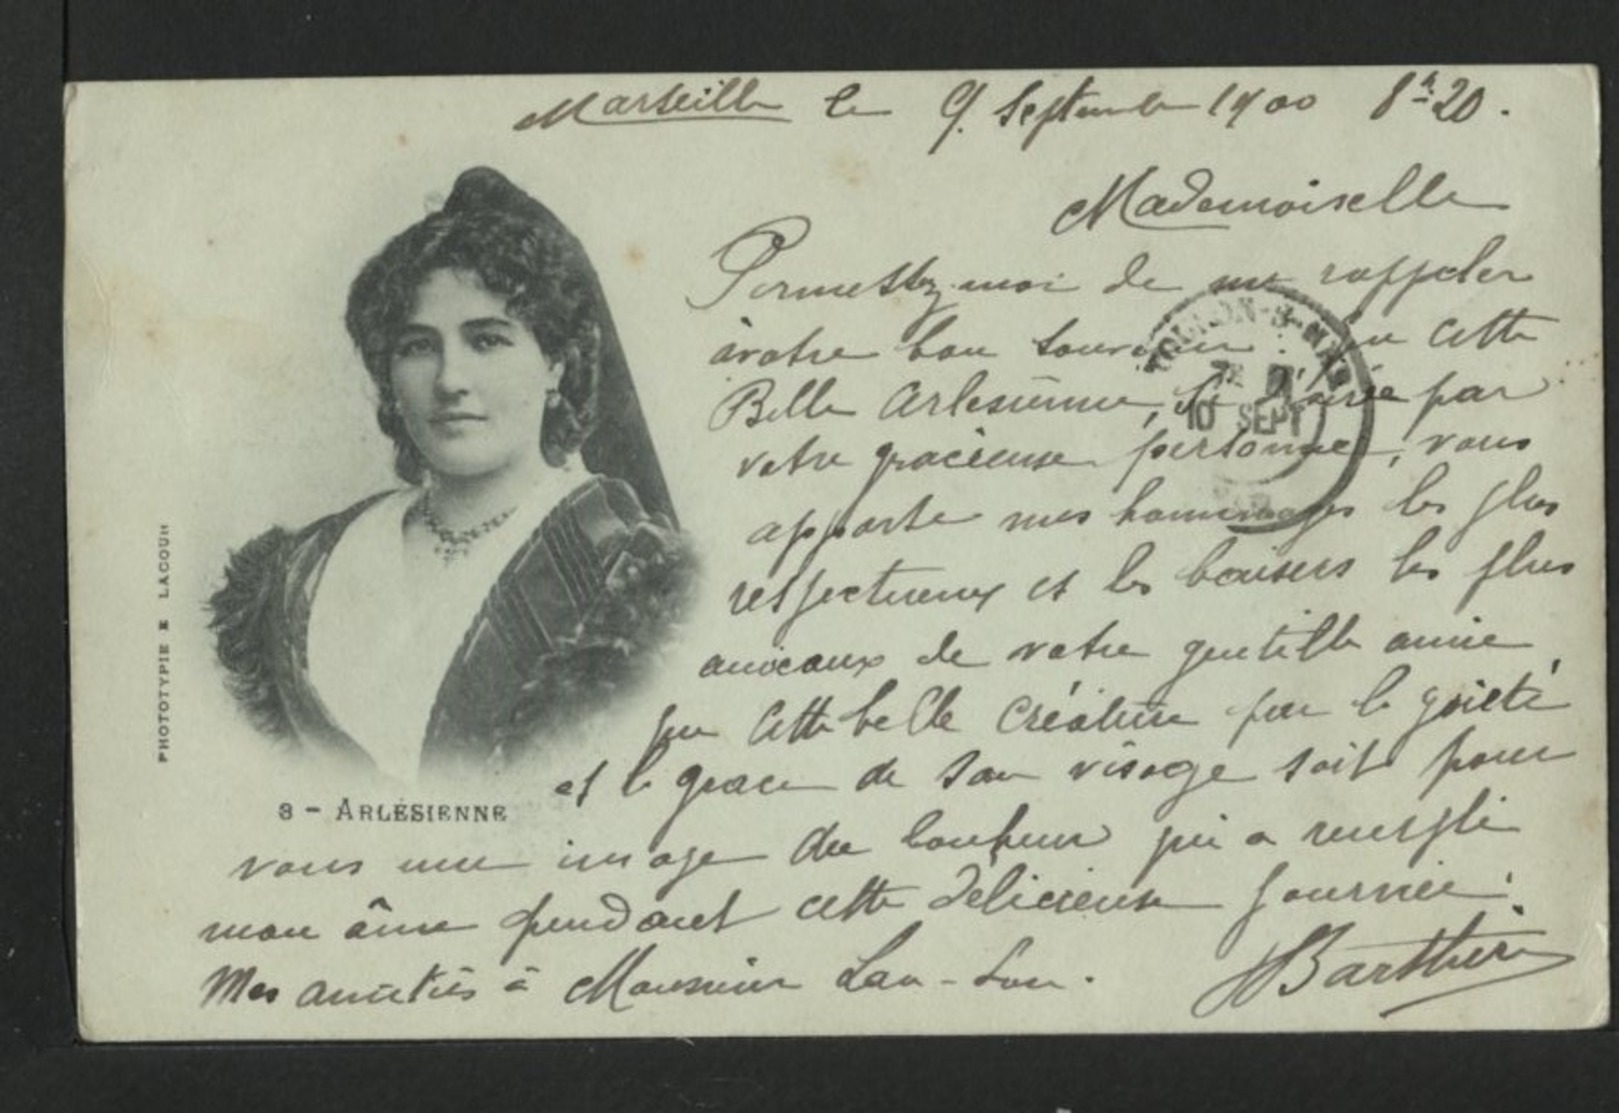 Marseille le 9 Septembre 1900 8h20.
Mademoiselle
Permettez-moi de me rappeler
à votre bon souvenir. Que cette
Belle Arlesienne, si par
votre gracieuse personne, vous
apporte mes hommages les plus
respectueux et les baisers les plus
amicaux de votre gentille amie
que cette belle créature par la gaieté
et la grace de son visage soit pour
vous une image du bonheur qui a rempli
mon âme pendant cette délicieuse journée.
Mes amitiés à Monsieur
Barthier
10 SEPT
8 - ARLÉSIENNE
PHOTOTYPIE E LACOUR